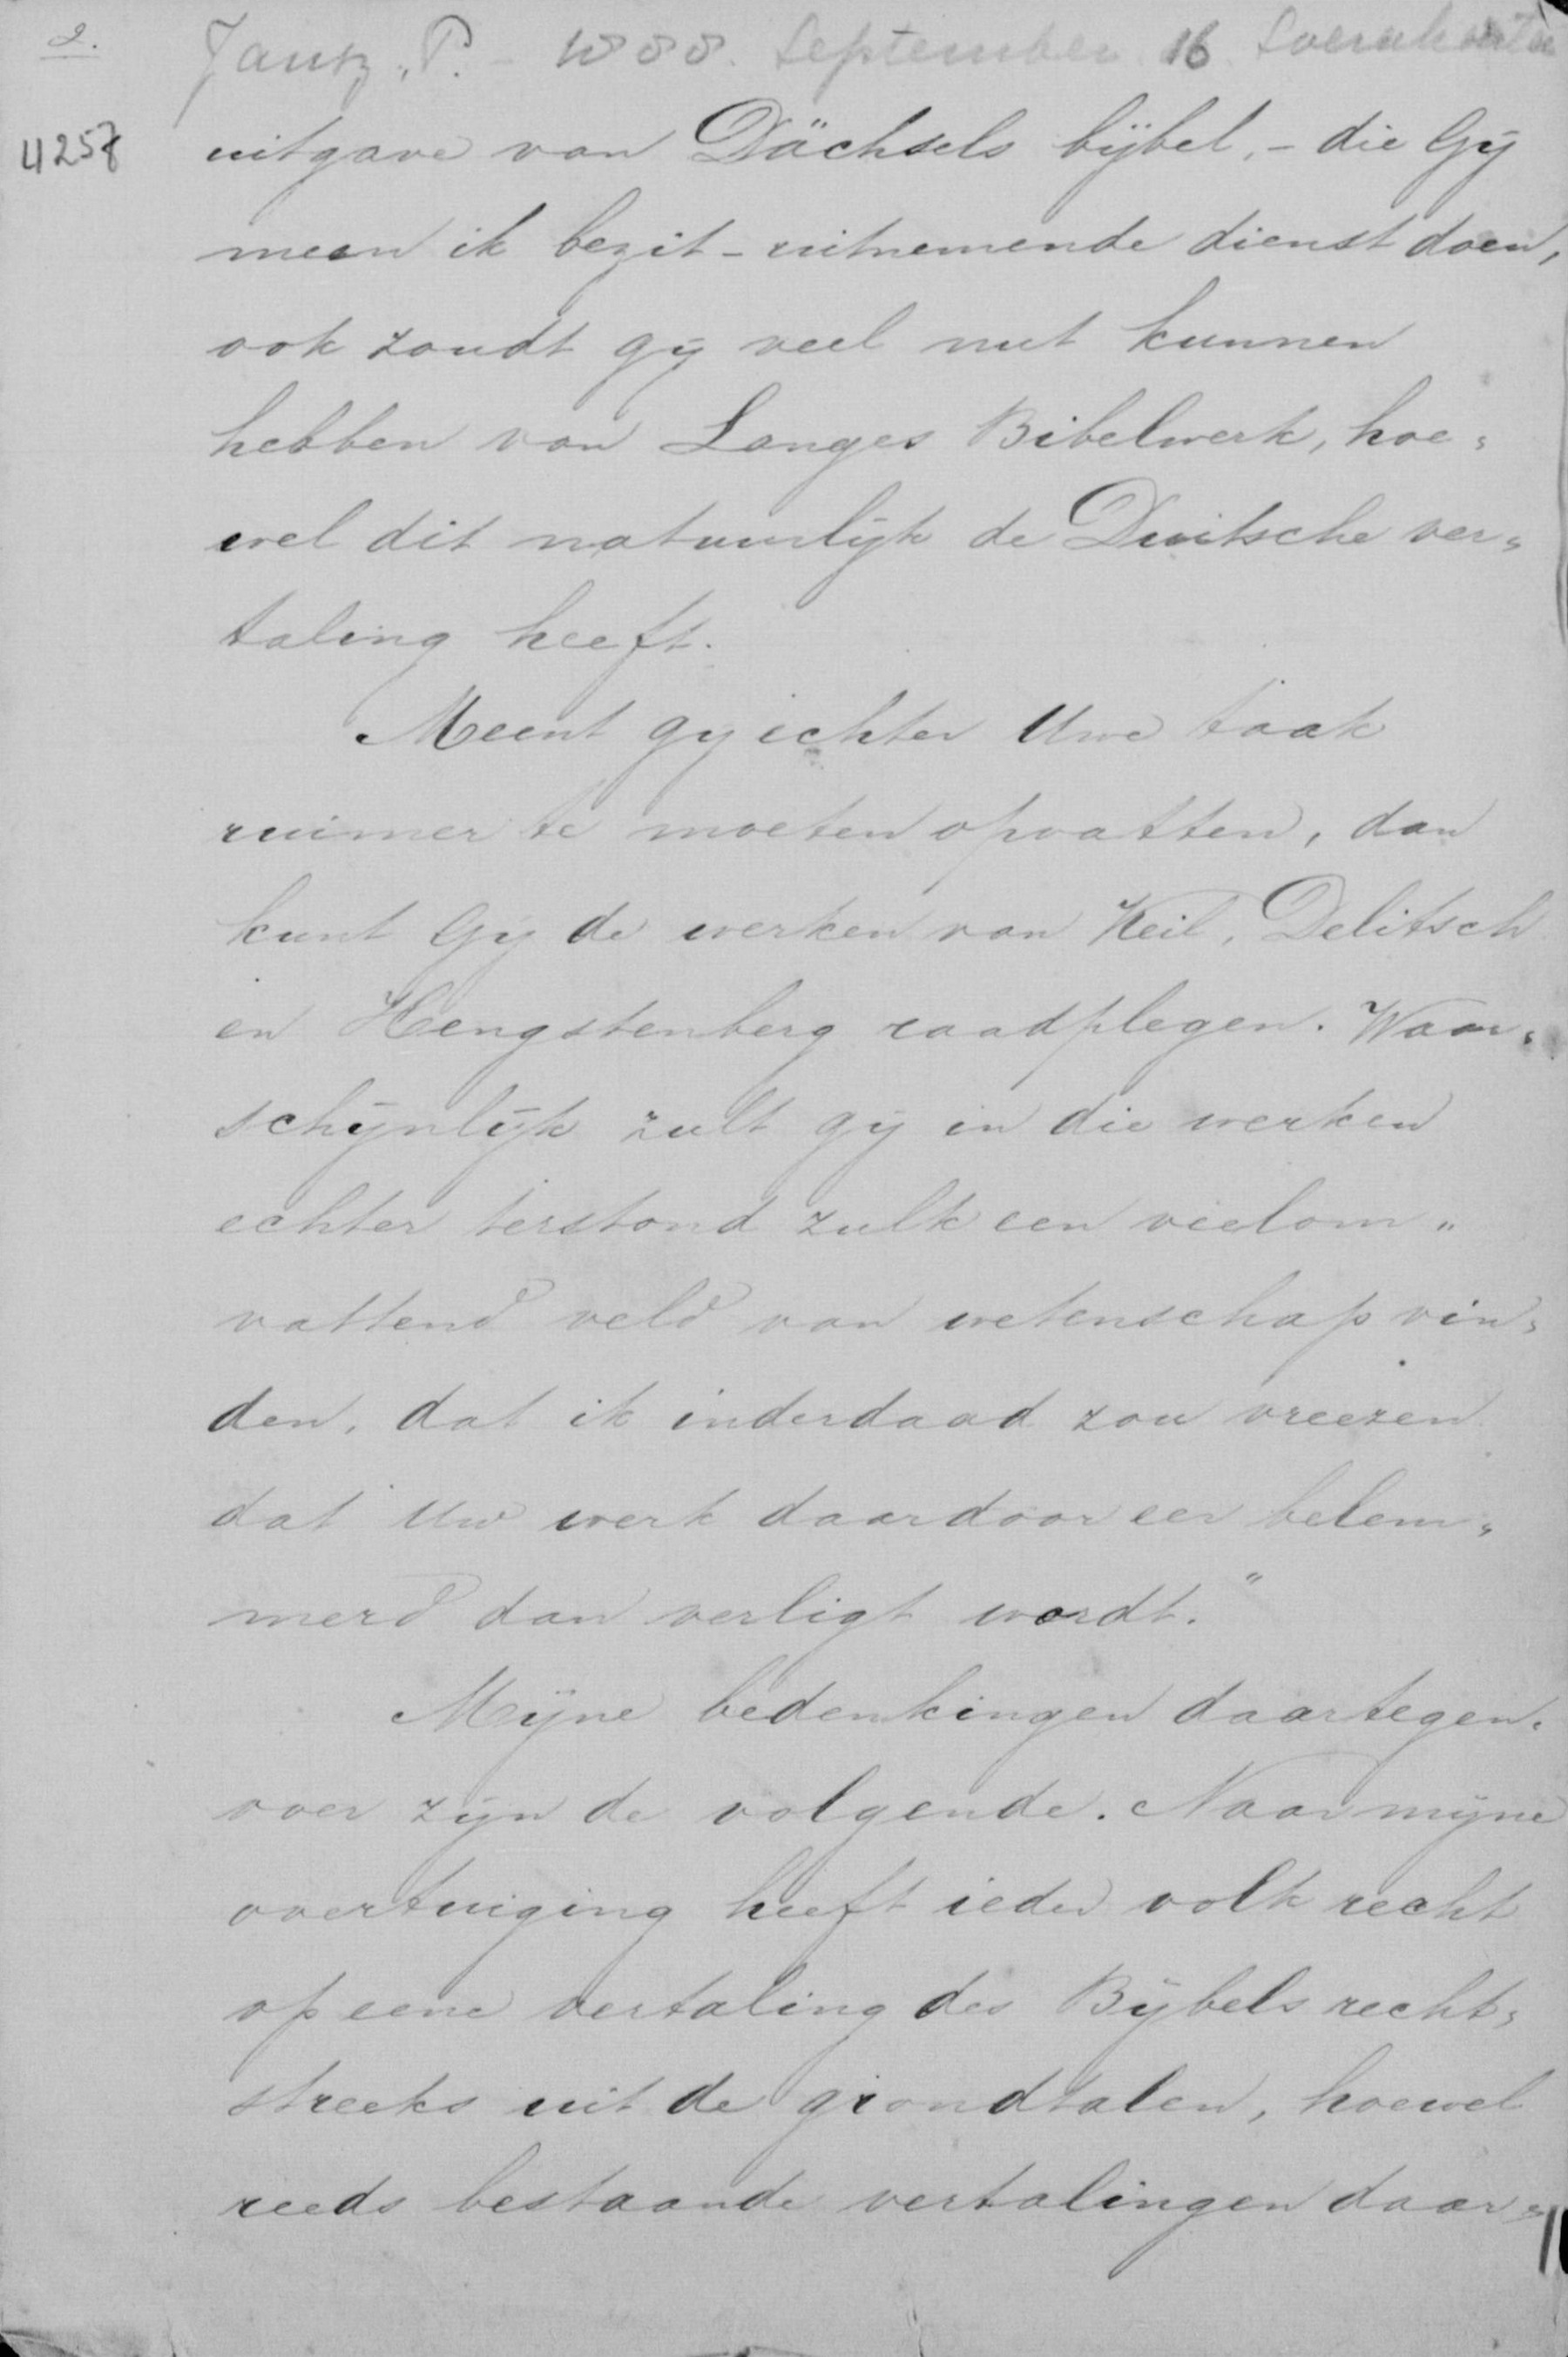 2.
Jansz, P. 1888. September 16
4257
uitgave van Dächsels bijbel, - die Gij
meen ik bezit - uitnemende dienst doen,
ook zoudt gij veel nut kunnen
hebben van Langes Bibelwerk, hoe„
wel dit natuurlijk de Duitsche ver„
taling heeft.
Meent gij echter Uwe taak
ruimer te moeten opvatten, dan
kunt Gij de werken van Keil, Delitsch
en Hengstenberg raadplegen. Waar„
schijnlijk zult gij in die werken
echter terstond zulk een veelom„
vattend veld van wetenschap vin„
den, dat ik inderdaad zou vreezen
dat Uw werk daardoor eer belem„
merd dan verligt wordt."
Mijne bedenkingen daartegen„
over zijn de volgende. Naar mijne
overtuiging heeft ieder volk recht
op eene vertaling des Bijbels recht„
streeks uit de grondtalen, hoewel
reeds bestaande vertalingen daar„